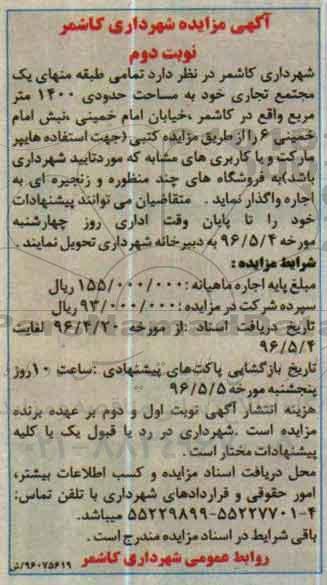 آگهی مزایده شهرداری کاشمر
نوبت دوم
شهرداری کاشمر در نظر دارد تمامی طبقه منهای یک
مجتمع تجاری خود به مساحت حدودی ۱۴۰۰ متر
مربع واقع در کاشمر ،خیابان امام خمینی ،نبش امام
خمینی ۶ را از طریق مزایده کتبی (جهت استفاده هایپر
مارکت و یا کاربری های مشابه که مورد تایید شهرداری
باشد)به فروشگاه های چند منظوره و زنجیره ای به
اجاره واگذار نماید . متقاضیان می توانند پیشنهادات
خود را تا پایان وقت اداری روز چهارشنبه
مورخه ۹۶/۵/۴ به دبیرخانه شهرداری تحویل نمایند .
شرایط مزایده :
مبلغ پایه اجاره ماهیانه : ۱۵۵/۰۰۰/۰۰۰ ریال
سپرده شرکت در مزایده : ۹۳/۰۰۰/۰۰۰ ریال
تاریخ دریافت اسناد :از مورخه ۹۶/۴/۲۰ لغایت
۹۶/۵/۴
تاریخ بازگشایی پاکت‌های پیشنهادی :ساعت ۱۰روز
پنجشنبه مورخه ۹۶/۵/۵
هزینه انتشار آگهی نوبت اول و دوم بر عهده برنده
مزایده است .شهرداری در رد یا قبول یک یا کلیه
پیشنهادات مختار است .
محل دریافت اسناد مزایده و کسب اطلاعات بیشتر،
امور حقوقی و قراردادهای شهرداری با تلفن تماس:
۴-۵۵۲۲۷۷۰۱-۵۵۲۲۹۸۹۹ میباشد.
باقی شرایط در اسناد مزایده مندرج است .
روابط عمومی شهرداری کاشمر
۹۶۰۷۵۶۱۹/ش